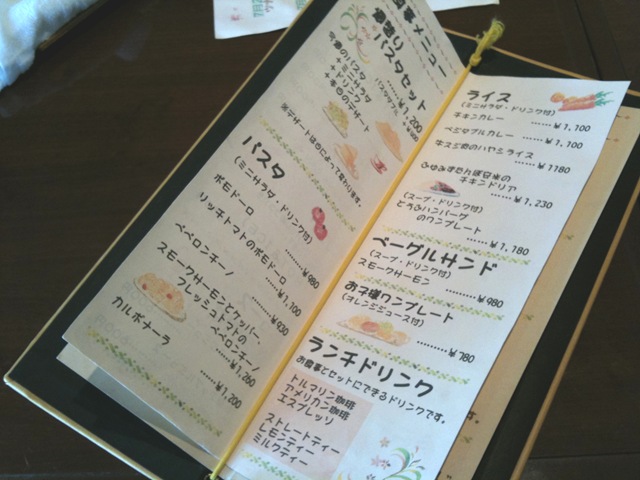 お食事メニュー
夢語り
パスタセット
......¥1,200
(パスタプラス ¥400)
今週のパスタ
+ミニサラダ
+ドリンク
+本日のデザート
※デザートは日によって変わります。
パスタ
(ミニサラダ・ドリンク付)
ポモドーロ
........¥980
リッチトマトのポモドーロ
......¥1,100
ペペロンチーノ
........¥930
スモークサーモンとケッパー、
フレッシュトマトの
ペペロンチーノ
......¥1,260
カルボナーラ
......¥1,200
ライス
(ミニサラダ・ドリンク付)
チキンカレー
......¥1,100
ベジタブルカレー
......¥1,100
牛スジ肉のハヤシライス
......¥1180
チキンドリア
......¥1,230
(スープ・ドリンク付)
とうふハンバーグ
のワンプレート
......¥1,180
ベーグルサンド
(スープ・ドリンク付)
スモークサーモン
........¥980
お子様ワンプレート
(オレンジジュース付)
.........¥780
ランチドリンク
お食事とセットにできるドリンクです。
トルマリン珈琲
アメリカン珈琲
エスプレッソ
ストレートティー
レモンティー
ミルクティー
す。